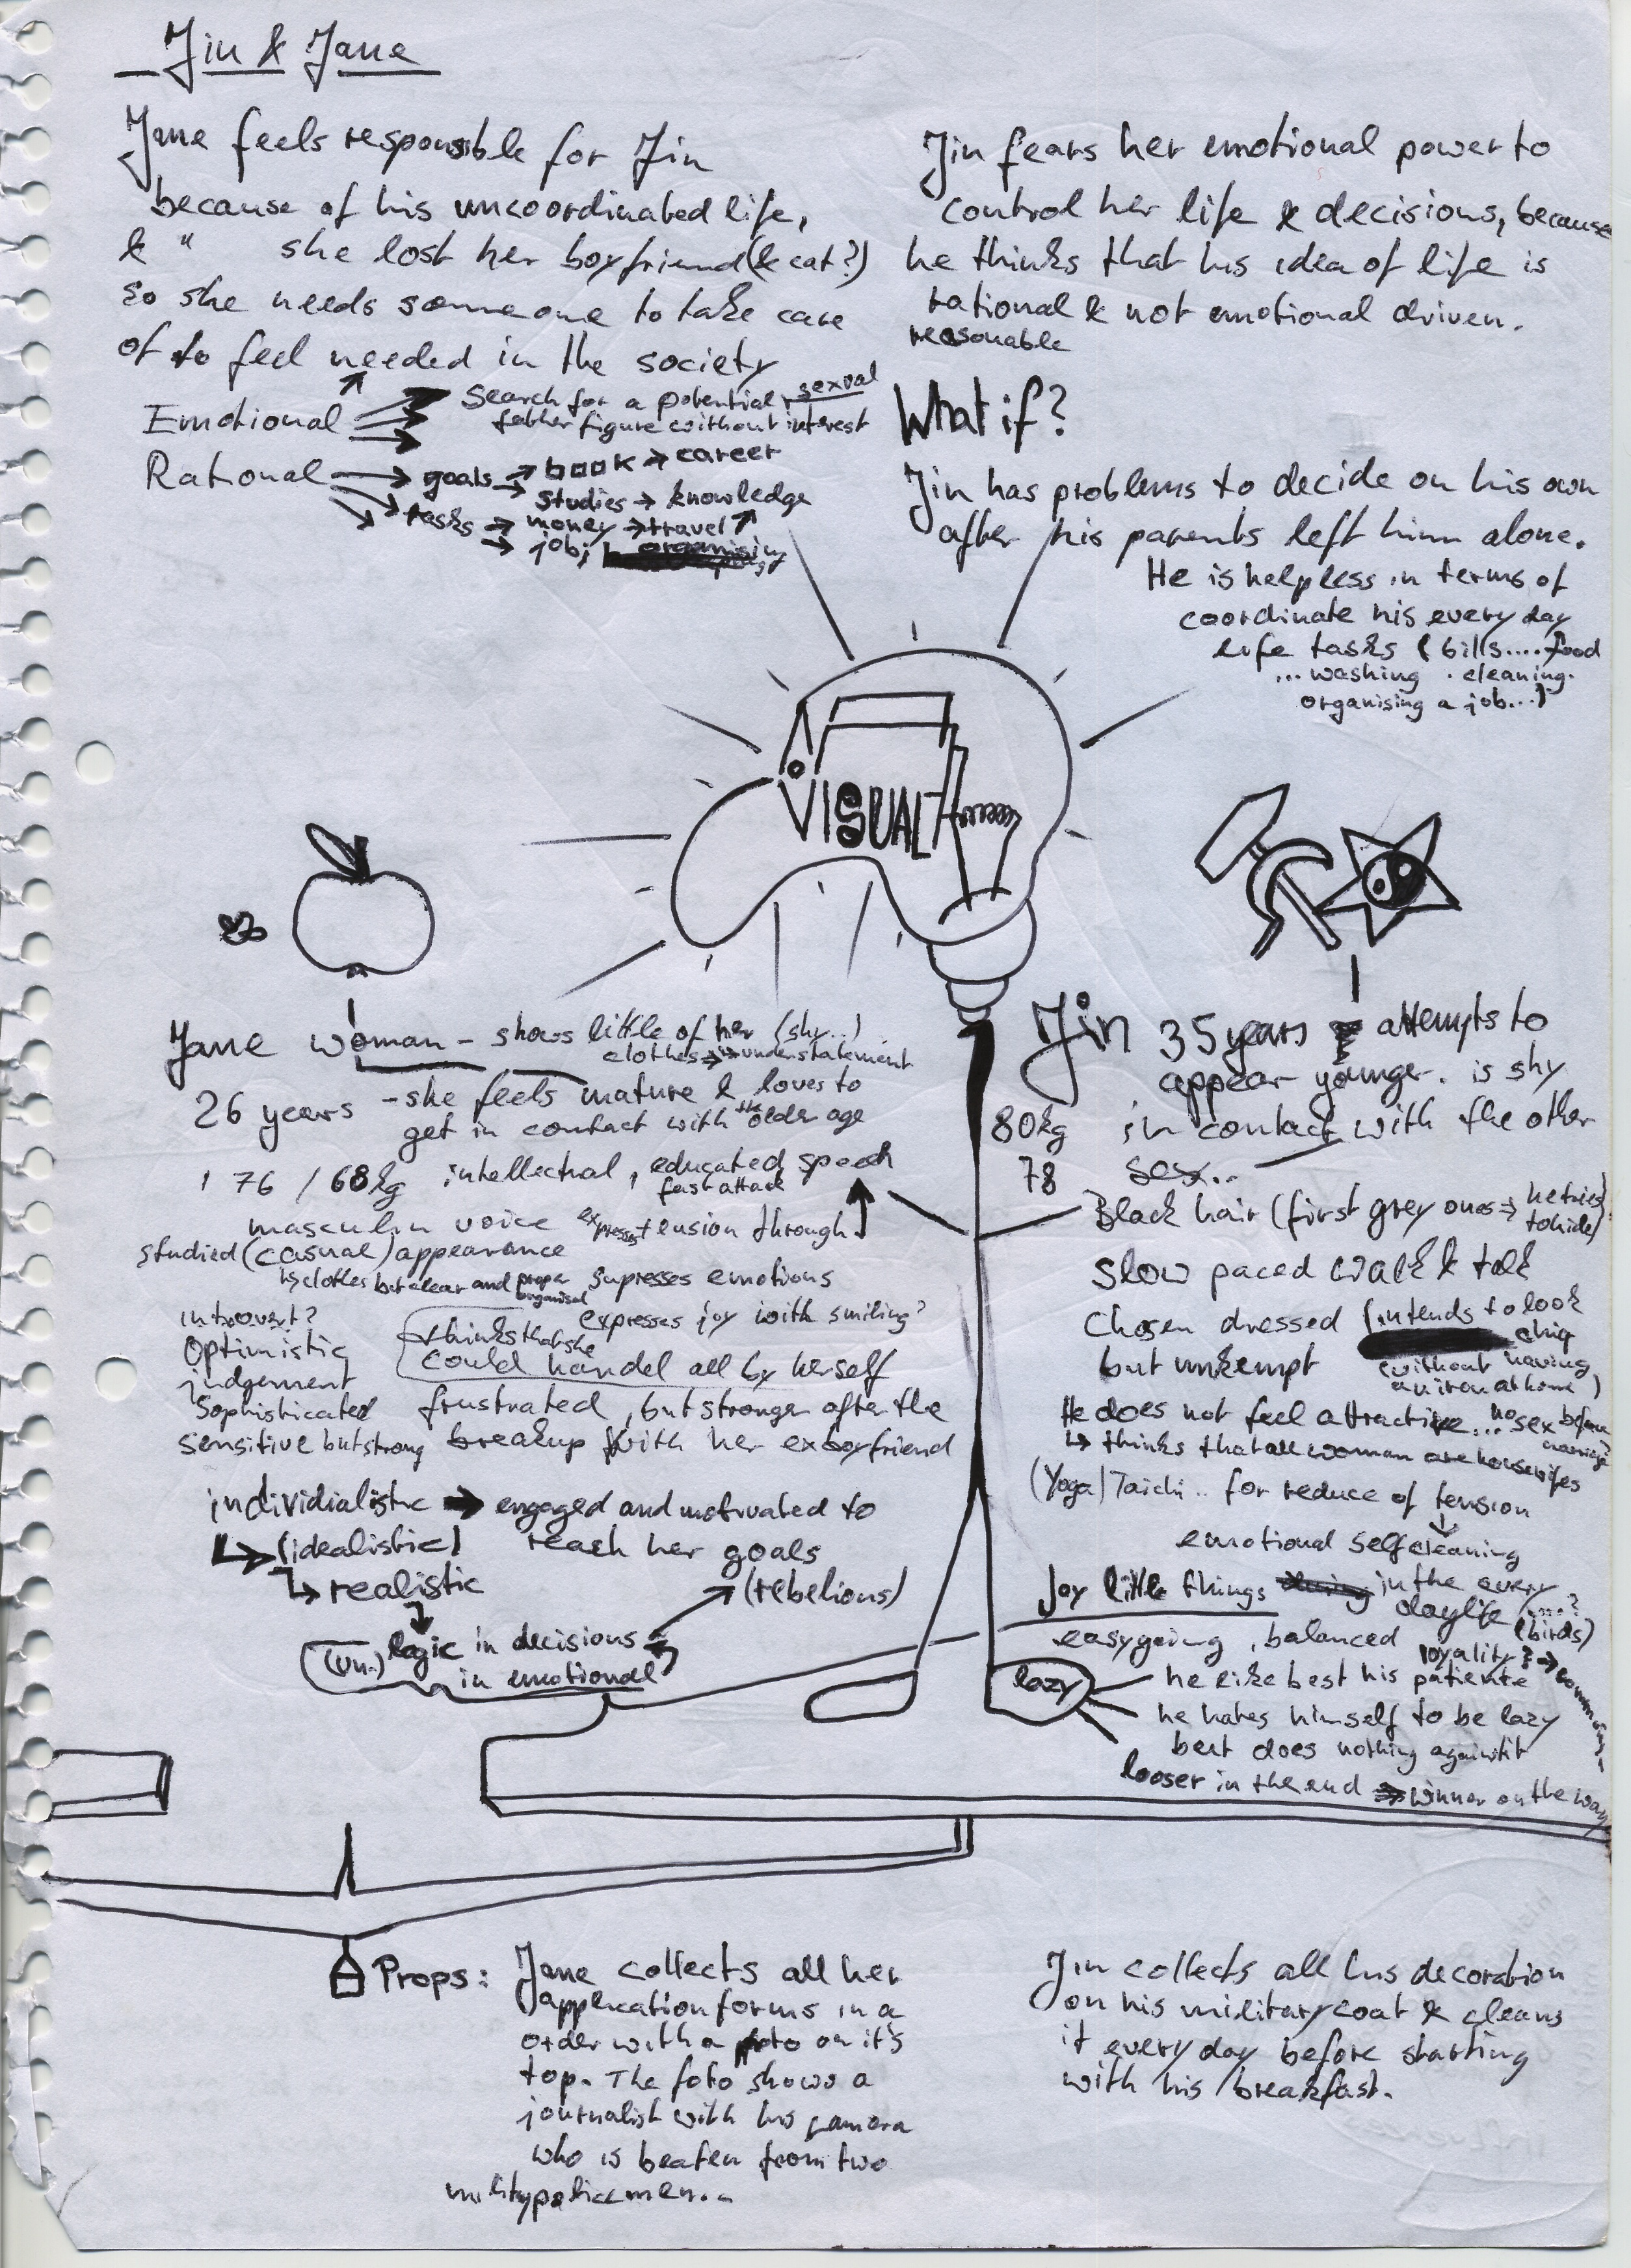 Jin & Jane
Jane feels responsible for Jin
because of his uncoordinated life,
& " she lost her boyfriend (& cat?)
so she needs someone to take care
of to feel needed in the society
Emotional
Search for a potential sexual
father figure without interest
Rational → goals → book → career
→ studies → knowledge
tasks → money → travel
→ job;
Jin fears her emotional power to
control her life & decisions, because
he thinks that his idea of life is
rational & not emotional driven.
reasonable
What if?
Jin has problems to decide on his own
after his parents left him alone.
He is helpless in terms of
coordinate his every day
life tasks (bills....food
...washing . cleaning.
organising a job...)
VISUAL
Jane woman - shows little of her (shy..)
clothes → understatement
26 years - she feels mature & loves to
get in contact with the older age
176 / 68kg intellectual, educated speech
fast attack
masculin voice expresses tension through
studied (casual) appearance
clothes but clear and proper
organised
supresses emotions
expresses joy with smiling?
introvert?
Optimistic
judgement
Sophisticated
sensitive but strong
thinks that she
could handel all by herself
frustrated, but stronger after the
breakup with her exboyfriend
individialistic → engaged and motivated to
reach her goals
(rebelious)
(idealistic)
realistic
(un-) logic in decisions
in emotional
Jin 35 years attempts to
appear younger. is shy
in contact with the other
sex..
80kg
78
Black hair (first grey ones → he tries
to hide)
Slow paced walk & talk
Chosen dressed (intends to look
chiq
but unkempt (without having
an iron at home)
He does not feel attractive... no sex before
marriage?
↳ thinks that all woman are housewifes
(Yoga/Taichi.. for reduce of tension
emotional selfcleaning
Joy little things in the every
daylife
(birds)
easygoing, balanced
loyality?
lazy
he like best his patiente
he hates himself to be lazy
but does nothing against it
looser in the end ⇒ winner on the way
Props: Jane collects all her
application forms in a
order with a foto on it's
top. The foto shows a
journalist with his camera
who is beaten from two
militypolicemen..
Jin collects all his decoration
on his military coat & cleans
it every day before starting
with his breakfast.